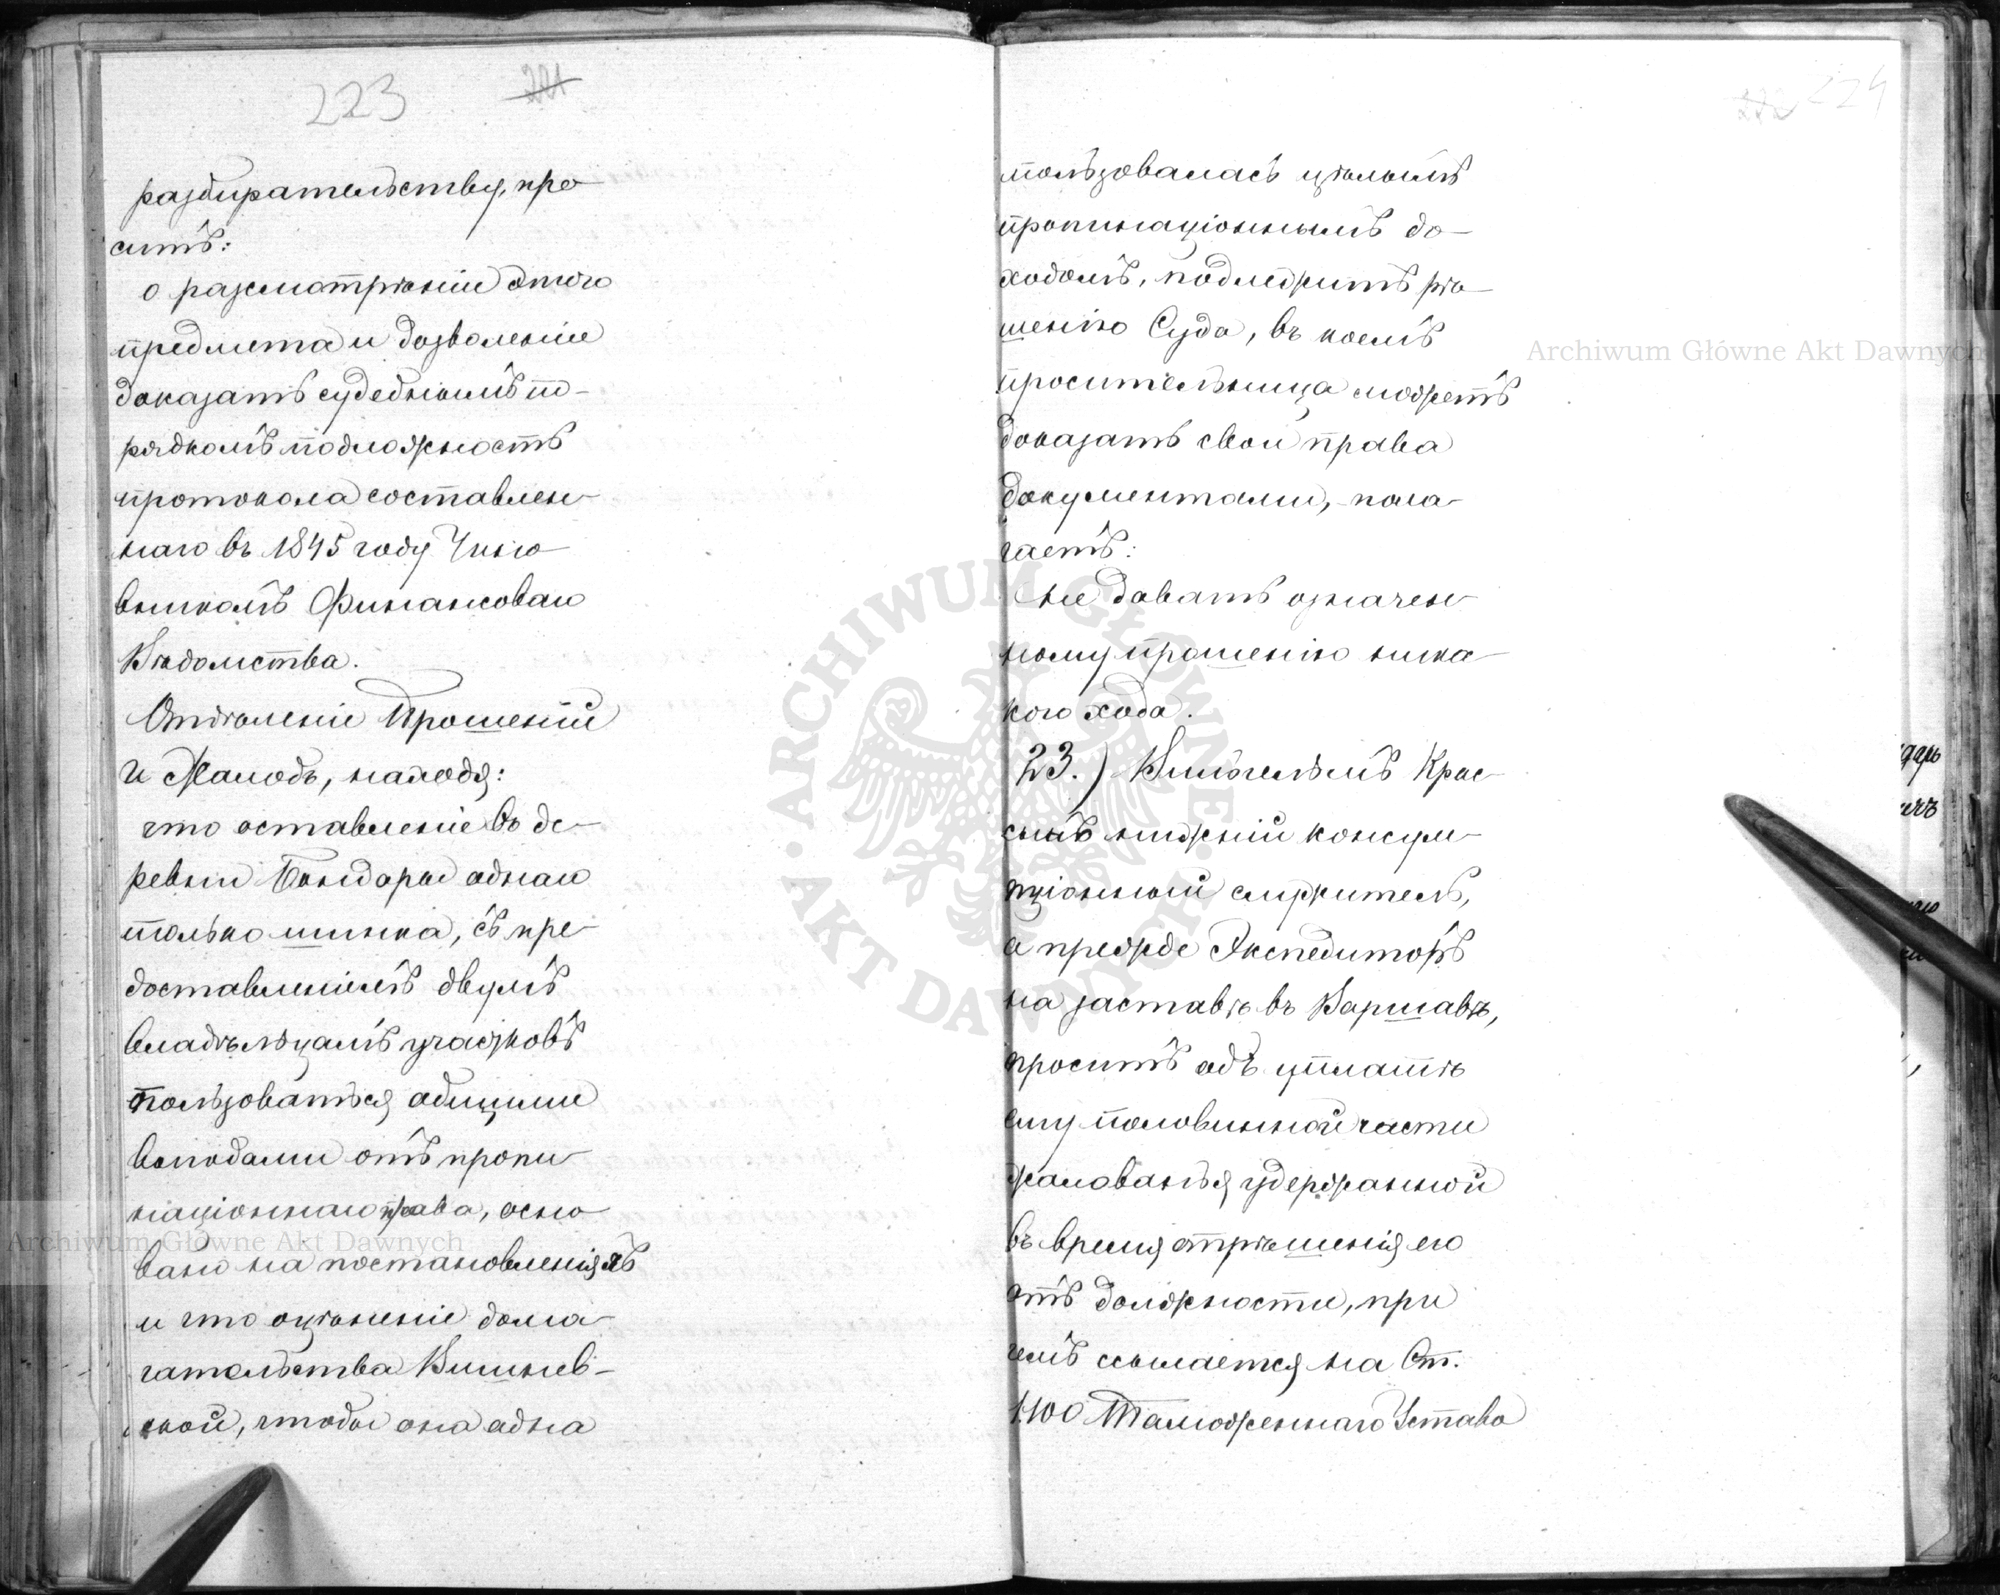 223 221
разбирательству, про-
ситъ:
о разсмотрѣніи этого
предмета и дозволеніе
доказать судебнымъ по-
рядкомъ подложность
протокола составлен-
наго въ 1845 году Чино-
вникомъ Финансоваго
Вѣдомства.
Отдѣленіе Прошеній
и Жалобъ, находя:
что оставленіе въ де-
ревни Бондары однаго
только шинка, съ пре-
доставленіемъ двумъ
владѣльцамъ участковъ
пользоваться общими
выгодами отъ пропи-
націоннаго права, осно-
вано на постановленіяхъ
и что оцѣненіе дома-
гательства Вишнев-
ской, чтобы она одна
222 224
пользовалась цѣлымъ
пропинаціоннымъ до-
ходомъ, подлежитъ рѣ-
шенію Суда, въ коемъ
просительница можетъ
доказать свои права
документами, пола-
гаетъ:
не давать означен-
ному прошенію ника-
кого хода.
23.) Вильгельмъ Крас-
скій нижній консум-
пціонный служитель,
а прежде Экспедиторъ
на заставѣ въ Варшавѣ,
проситъ объ уплатѣ
ему половинной части
жалованья удержанной
въ время отрѣшенія его
отъ должности, при
чемъ ссылается на Ст.
1100 Таможеннаго Устава
Archiwum Główne Akt Dawnych
Archiwum Główne Akt Dawnych
ARCHIWUM GŁÓWNE AKT DAWNYCH